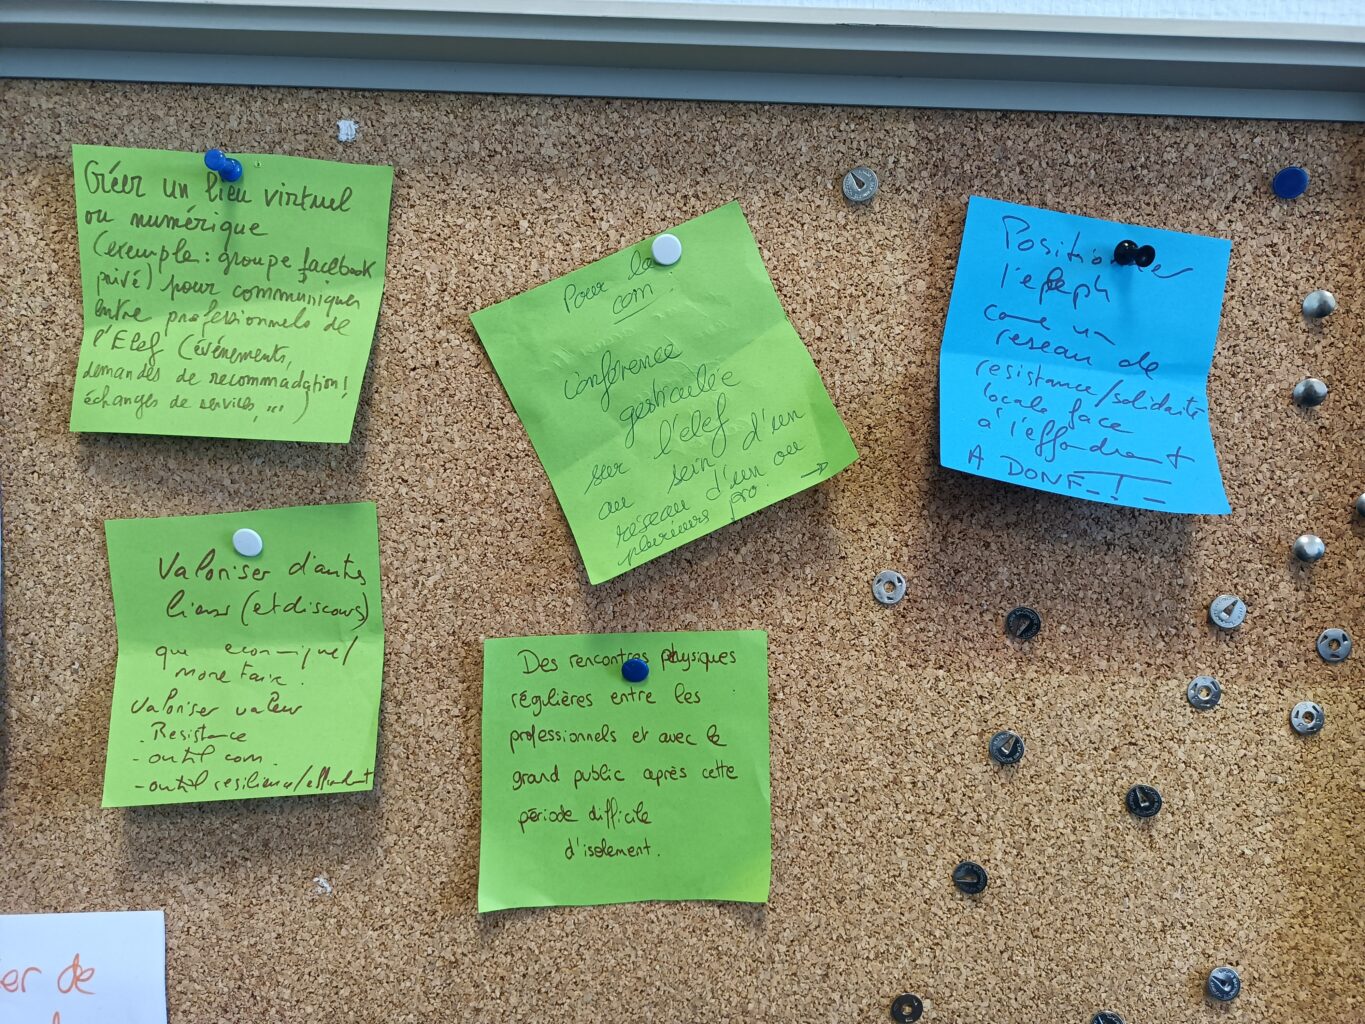 Créer un lieu virtuel
ou numérique
(exemple : groupe facebook
privé) pour communiquer
entre professionnels de
l'Elef (événements,
demandes de recommadation !
échanges de services, ...)
Pour la
com.
conférence
gesticulée
sur l'élef
au sein d'un
réseau d'un ou
plusieurs pro. →
Positionner
l'
come un
reseau de
resistance/solidarité
locale face
à l'effondremt
A DONF - ! -
Valoriser d'autres
liens (et discours)
que economique/
monetaire.
Valoriser valeur
. Resistance
- outil com.
- outil resilience/effondremt
Des rencontres physiques
régulières entre les
professionnels et avec le
grand public après cette
période difficile
d'isolement.
er de